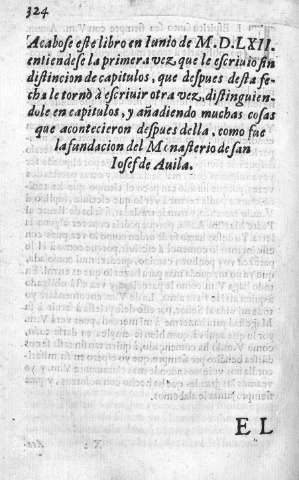 324
Acabose este libro en Iunio de M.D.LXII.
entiendese la primera vez, que le escriuio sin
distincion de capitulos, que despues desta fe-
cha le tornò à escriuir otra vez, distinguien-
dole en capitulos, y añadiendo muchas cosas
que acontecieron despues della, como fue
la fundacion del Monasterio de san
Iosef de Auila.
EL